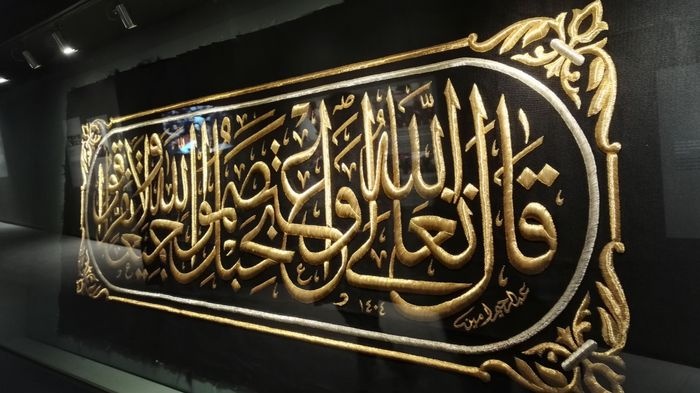 قال الله تعالى واعتصموا بحبل الله جميعا ولا تفرقوا
١٤٠٤
عبدالرحيم امين